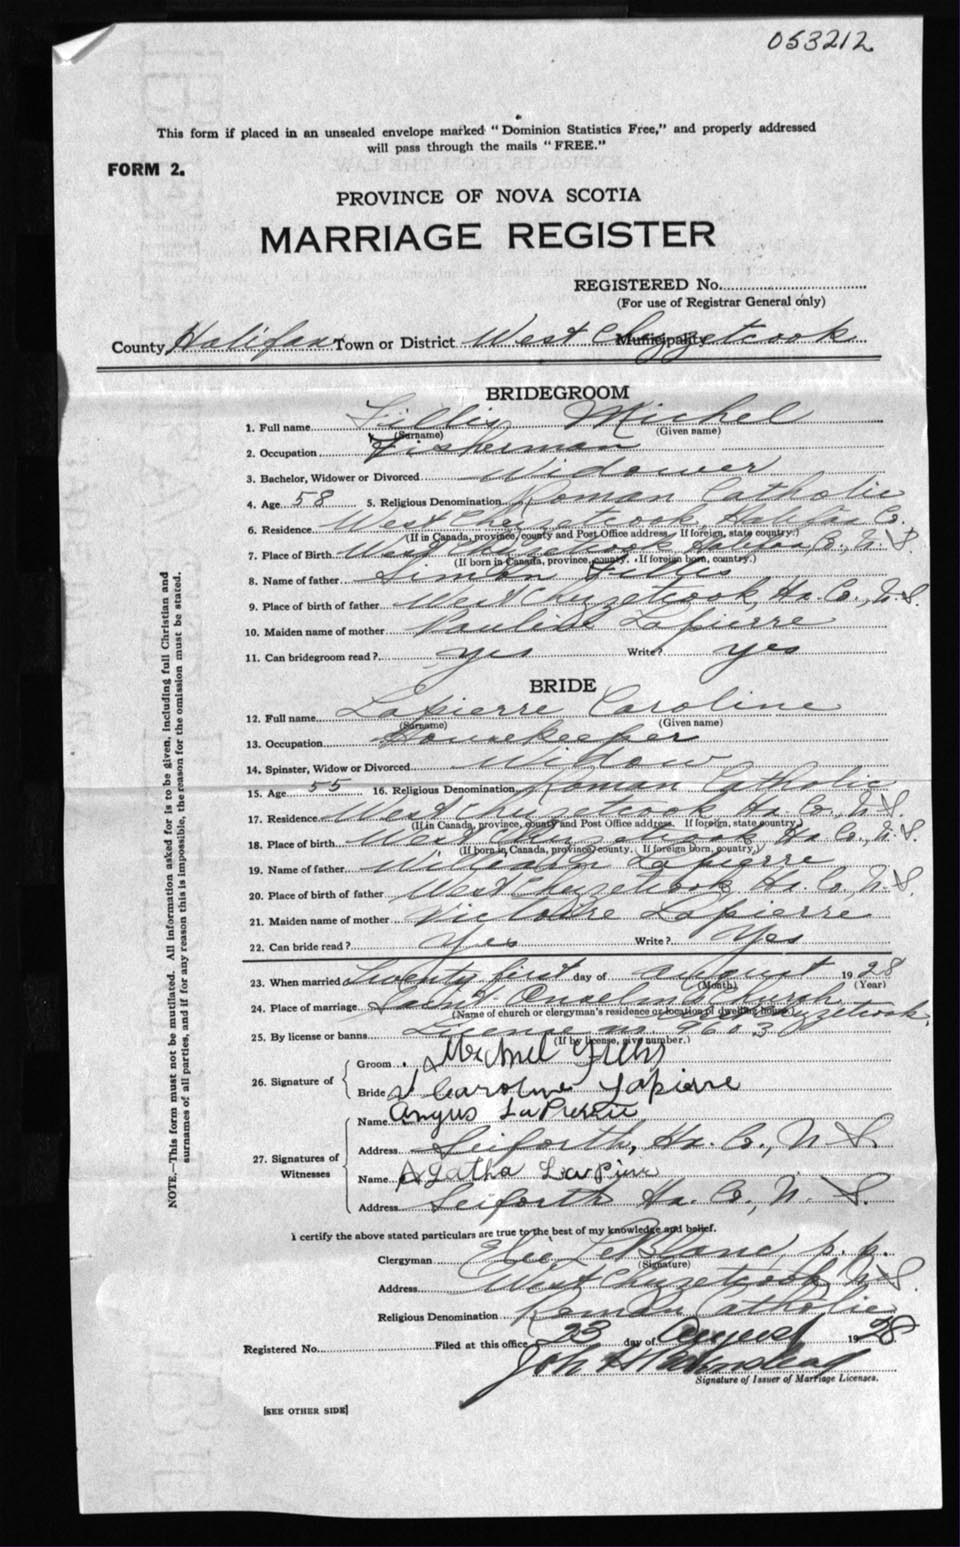 053212
This form if placed in an unsealed envelope marked "Dominion Statistics Free," and properly addressed
will pass through the mails "FREE."
FORM 2.
PROVINCE OF NOVA SCOTIA
MARRIAGE REGISTER
REGISTERED No.
(For use of Registrar General only)
County Halifax Town or District West Chezzetcook Municipality
BRIDEGROOM
1. Full name Fillis Michel
(Surname) (Given name)
2. Occupation Fisherman
3. Bachelor, Widower or Divorced Widower
4. Age 58 5. Religious Denomination Roman Catholic
6. Residence West Chezzetcook, Halifax Co.
(If in Canada, province, county and Post Office address. If foreign, state country.)
7. Place of Birth West Chezzetcook, Halifax Co., N.S.
(If born in Canada, province, county. If foreign born, country.)
8. Name of father Simon Fillis
9. Place of birth of father West Chezzetcook, Hx. Co., N.S.
10. Maiden name of mother Lapierre
11. Can bridegroom read? yes Write? yes
BRIDE
12. Full name Lapierre Caroline
(Surname) (Given name)
13. Occupation Housekeeper
14. Spinster, Widow or Divorced Widow
15. Age 55 16. Religious Denomination Roman Catholic
17. Residence West Chezzetcook Hx. Co., N.S.
(If in Canada, province, county and Post Office address. If foreign, state country.)
18. Place of birth West Chezzetcook Hx. Co., N.S.
(If born in Canada, province, county. If foreign born, country.)
19. Name of father William Lapierre
20. Place of birth of father West Chezzetcook, Hx. Co., N.S.
21. Maiden name of mother Victoire Lapierre
22. Can bride read? Yes Write? Yes
23. When married Twenty first day of August 1928
(Month) (Year)
24. Place of marriage Saint Anselm Church Chezzetcook
(Name of church or clergyman's residence or location of dwelling house)
25. By license or banns License no.
(If by license, give number.)
26. Signature of
Groom Michel Fillis
Bride Caroline Lapierre
27. Signatures of Witnesses
Name Angus LaPierre
Address Seiforth, Hx. Co., N.S.
Name Agatha Lapierre
Address Seiforth Hx. Co., N.S.
I certify the above stated particulars are true to the best of my knowledge and belief.
Clergyman LeBlanc, p.p.
(Signature)
Address West Chezzetcook N.S.
Religious Denomination Roman Catholic
Registered No. Filed at this office 23 day of August 1928
Signature of Issuer of Marriage Licenses.
[SEE OTHER SIDE]
NOTE.—This form must not be mutilated. All information asked for is to be given, including full Christian and
surnames of all parties, and if for any reason this is impossible, the reason for the omission must be stated.